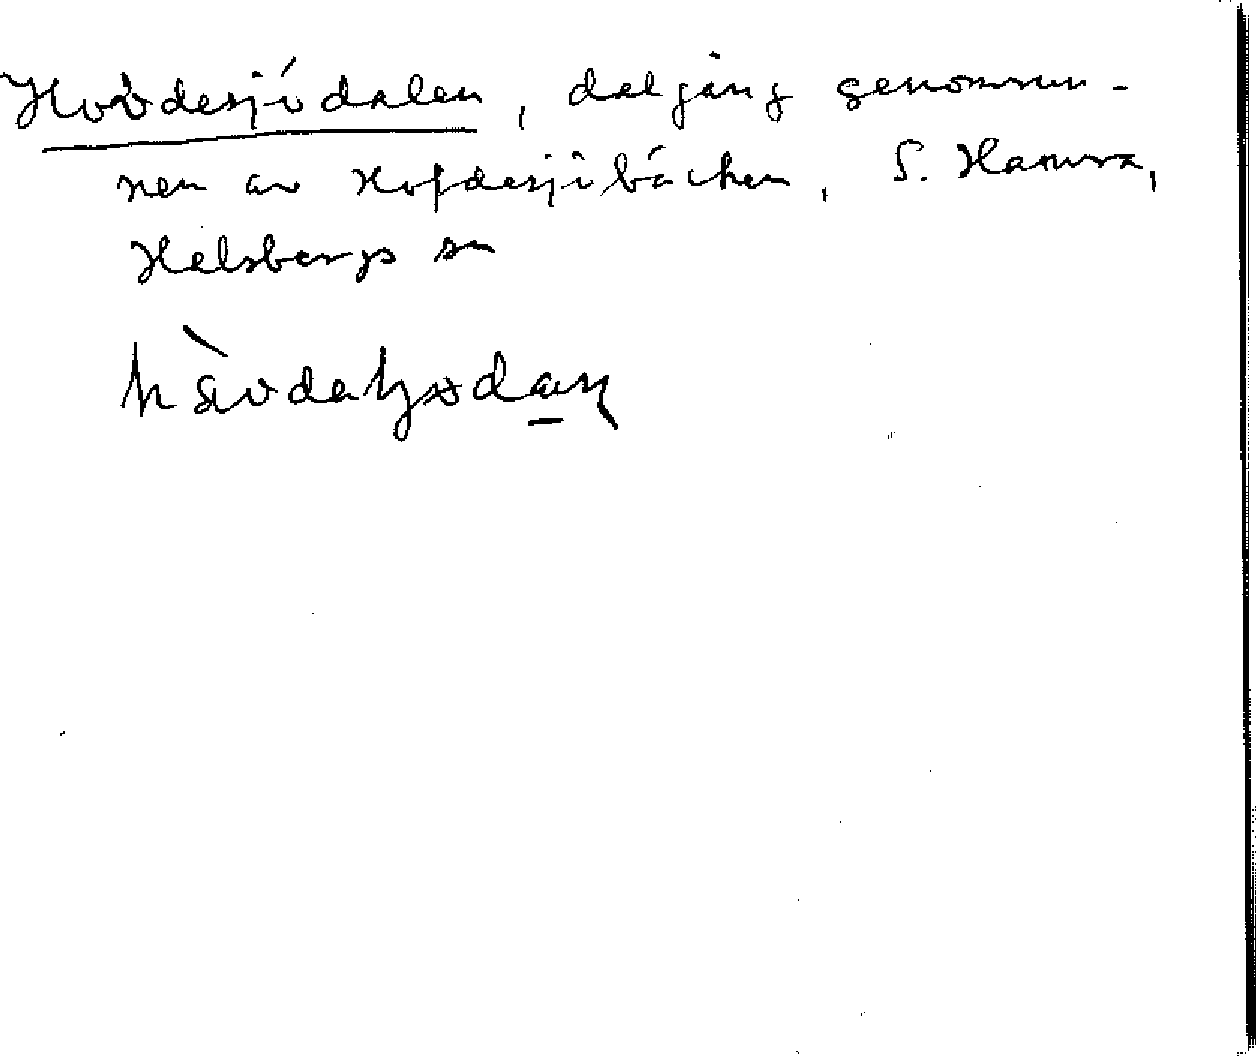 Hovdesjödalen, dalgång genomrun-
nen av Hofdesjöbäcken, S. Hamra,
Helsbergs sn